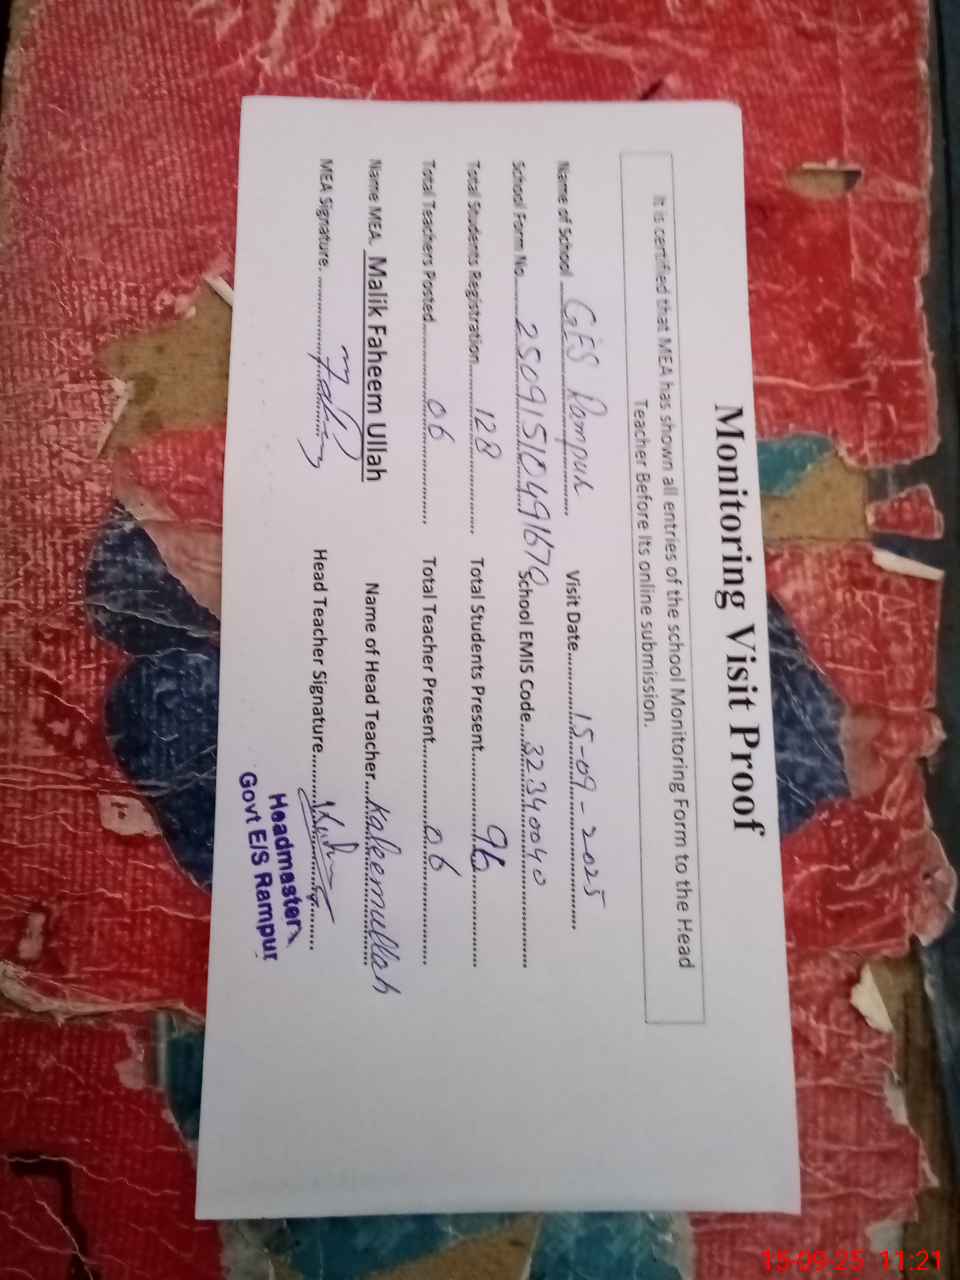 Monitoring Visit Proof
It is certified that MEA has shown all entries of the school Monitoring Form to the Head
Teacher Before its online submission.
Name of School GES Rampur Visit Date 15-09-2025
School Form No. 2509151049167 School EMIS Code 32340040
Total Students Registration 128 Total Students Present 96
Total Teachers Posted 06 Total Teacher Present 06
Name MEA. Malik Faheem Ullah Name of Head Teacher Kaleemullah
MEA Signature. Head Teacher Signature
Headmaster
Govt E/S Rampur
15-09-25 11:21